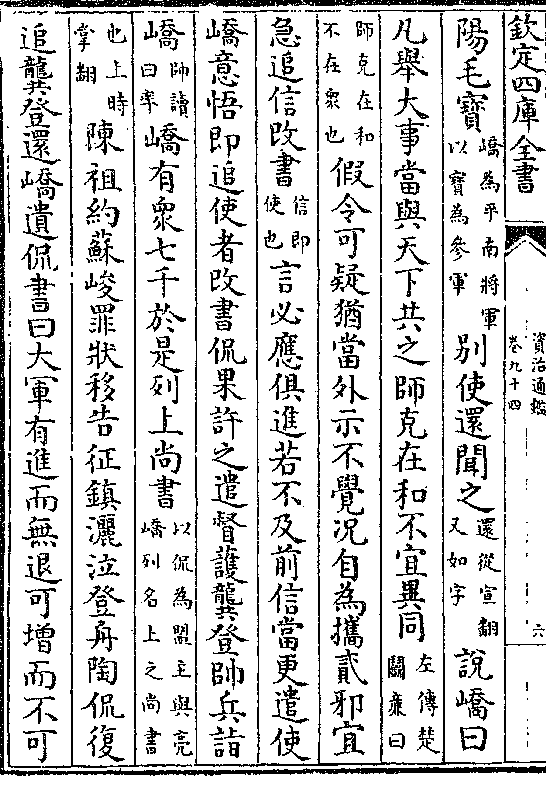 欽定四庫全書
資治通鑑
卷九十四
六
陽毛寶嶠為平南將軍以寶為參軍別使還聞之還從宣翻又如字說嶠曰
凡舉大事當與天下共之師克在和不宜異同左傳楚鬬亷曰
師克在和不在衆也假令可疑猶當外示不覺况自為攜貳邪宜
急追信改書信即使也言必應俱進若不及前信當更遣使
嶠意悟即追使者改書侃果許之遣督護龔登帥兵詣
嶠師讀曰率嶠有衆七千於是列上尚書以侃為盟主與亮嶠列名上之尚書
也上時掌翻陳祖約蘇峻罪狀移告征鎮灑泣登舟陶侃復
追龔登還嶠遺侃書曰大軍有進而無退可增而不可